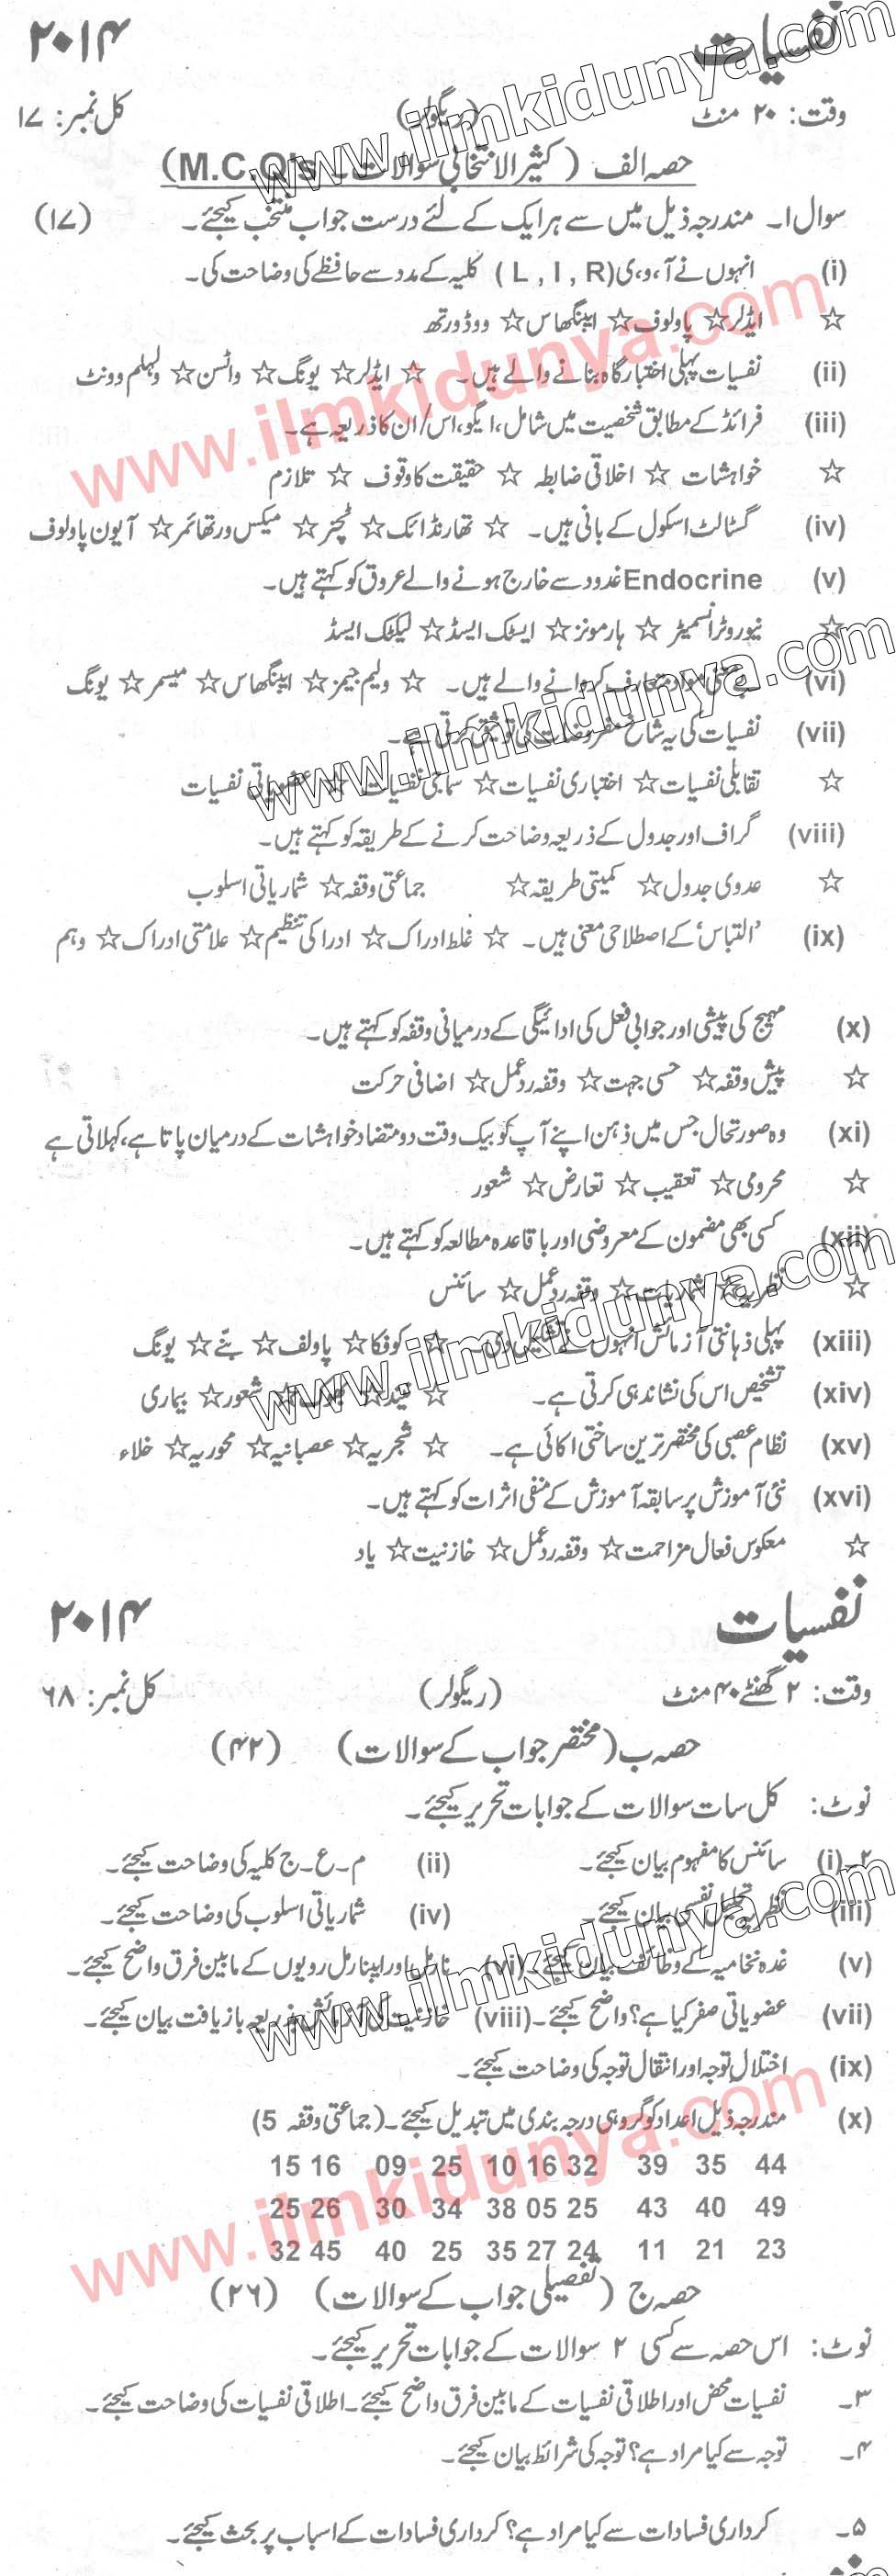 نفسیات ۲۰۱۴
وقت: ۲۰ منٹ (ریگولر) کل نمبر: ۱۷
حصہ الف (کثیر الانتخابی سوالات۔ M.C.Q's)
سوال ۱۔ مندرجہ ذیل میں سے ہر ایک کے لئے درست جواب منتخب کیجئے۔ (۱۷)
(i) انہوں نے آ، و، ی (L , I , R) کلیہ کے مدد سے حافظے کی وضاحت کی۔
☆ ایڈلر ☆ پاولوف ☆ ایبنگھاس ☆ ووڈورتھ
(ii) نفسیات پہلی اختبار گاہ بنانے والے ہیں۔ ☆ ایڈلر ☆ یونگ ☆ واٹسن ☆ ولہلم وونٹ
(iii) فرائڈ کے مطابق شخصیت میں شامل، ایگو، اس/ان کا ذریعہ ہے۔
☆ خواہشات ☆ اخلاقی ضابطہ ☆ حقیقت کا وقوف ☆ تلازم
(iv) گسٹالٹ اسکول کے بانی ہیں۔ ☆ تھارنڈائک ☆ ٹچنر ☆ میکس ورتھائمر ☆ آیون پاولوف
(v) Endocrine غدود سے خارج ہونے والے عروق کو کہتے ہیں۔
☆ نیوروٹرانسمیٹر ☆ ہارمونز ☆ ایسٹک ایسڈ ☆ لیکٹک ایسڈ
(vi) بے معنی مواد متعارف کروانے والے ہیں۔ ☆ ولیم جیمز ☆ ایبنگھاس ☆ میسمر ☆ یونگ
(vii) نفسیات کی یہ شاخ مفروضات کی توثیق کرتی ہے۔
☆ تقابلی نفسیات ☆ اختباری نفسیات ☆ سماجی نفسیات ☆ عضویاتی نفسیات
(viii) گراف اور جدول کے ذریعہ وضاحت کرنے کے طریقہ کو کہتے ہیں۔
☆ عددی جدول ☆ کمیتی طریقہ ☆ جماعتی وقفہ ☆ شماریاتی اسلوب
(ix) 'التباس' کے اصطلاحی معنی ہیں۔ ☆ غلط ادراک ☆ ادراکی تنظیم ☆ علامتی ادراک ☆ وہم
(x) مہیج کی پیشی اور جوابی فعل کی ادائیگی کے درمیانی وقفہ کو کہتے ہیں۔
☆ پیش وقفہ ☆ حسی جہت ☆ وقفہ ردعمل ☆ اضافی حرکت
(xi) وہ صورتحال جس میں ذہن اپنے آپ کو بیک وقت دو متضاد خواہشات کے درمیان پاتا ہے، کہلاتی ہے
☆ محرومی ☆ تعقیب ☆ تعارض ☆ شعور
(xii) کسی بھی مضمون کے معروضی اور باقاعدہ مطالعہ کو کہتے ہیں۔
☆ نظریہ ☆ شماریات ☆ وقفہ ردعمل ☆ سائنس
(xiii) پہلی ذہانتی آزمائش انہوں نے تشکیل دی۔ ☆ کوفکا ☆ پاولف ☆ بنے ☆ یونگ
(xiv) تشخیص اس کی نشاندہی کرتی ہے۔ ☆ نیند ☆ بھوک ☆ شعور ☆ بیماری
(xv) نظام عصبی کی مختصر ترین ساختی اکائی ہے۔ ☆ شجریہ ☆ عصبانیہ ☆ محوریہ ☆ خلاء
(xvi) نئی آموزش پر سابقہ آموزش کے منفی اثرات کو کہتے ہیں۔
☆ معکوس فعال مزاحمت ☆ وقفہ ردعمل ☆ خازنیت ☆ یاد
نفسیات ۲۰۱۴
وقت: ۲ گھنٹے ۴۰ منٹ (ریگولر) کل نمبر: ۶۸
حصہ ب (مختصر جواب کے سوالات) (۴۲)
نوٹ: کل سات سوالات کے جوابات تحریر کیجئے۔
۲۔(i) سائنس کا مفہوم بیان کیجئے۔ (ii) م۔ع۔ج کلیہ کی وضاحت کیجئے۔
(iii) نظریہ تحلیل نفسی بیان کیجئے۔ (iv) شماریاتی اسلوب کی وضاحت کیجئے۔
(v) غدہ نخامیہ کے وظائف بیان کیجئے۔ (vi) نارمل اور ابنارمل رویوں کے مابین فرق واضح کیجئے۔
(vii) عضویاتی صفر کیا ہے؟ واضح کیجئے۔ (viii) خازنیت کی آزمائش بذریعہ بازیافت بیان کیجئے۔
(ix) اختلال توجہ اور انتقال توجہ کی وضاحت کیجئے۔
(x) مندرجہ ذیل اعداد کو گروہی درجہ بندی میں تبدیل کیجئے۔ (جماعتی وقفہ 5)
15 16 09 25 10 16 32 39 35 44
25 26 30 34 38 05 25 43 40 49
32 45 40 25 35 27 24 11 21 23
حصہ ج (تفصیلی جواب کے سوالات) (۲۶)
نوٹ: اس حصہ سے کسی ۲ سوالات کے جوابات تحریر کیجئے۔
۳۔ نفسیات محض اور اطلاقی نفسیات کے مابین فرق واضح کیجئے۔ اطلاقی نفسیات کی وضاحت کیجئے۔
۴۔ توجہ سے کیا مراد ہے؟ توجہ کی شرائط بیان کیجئے۔
۵۔ کرداری فسادات سے کیا مراد ہے؟ کرداری فسادات کے اسباب پر بحث کیجئے۔
www.ilmkidunya.com
www.ilmkidunya.com
www.ilmkidunya.com
www.ilmkidunya.com
www.ilmkidunya.com
www.ilmkidunya.com